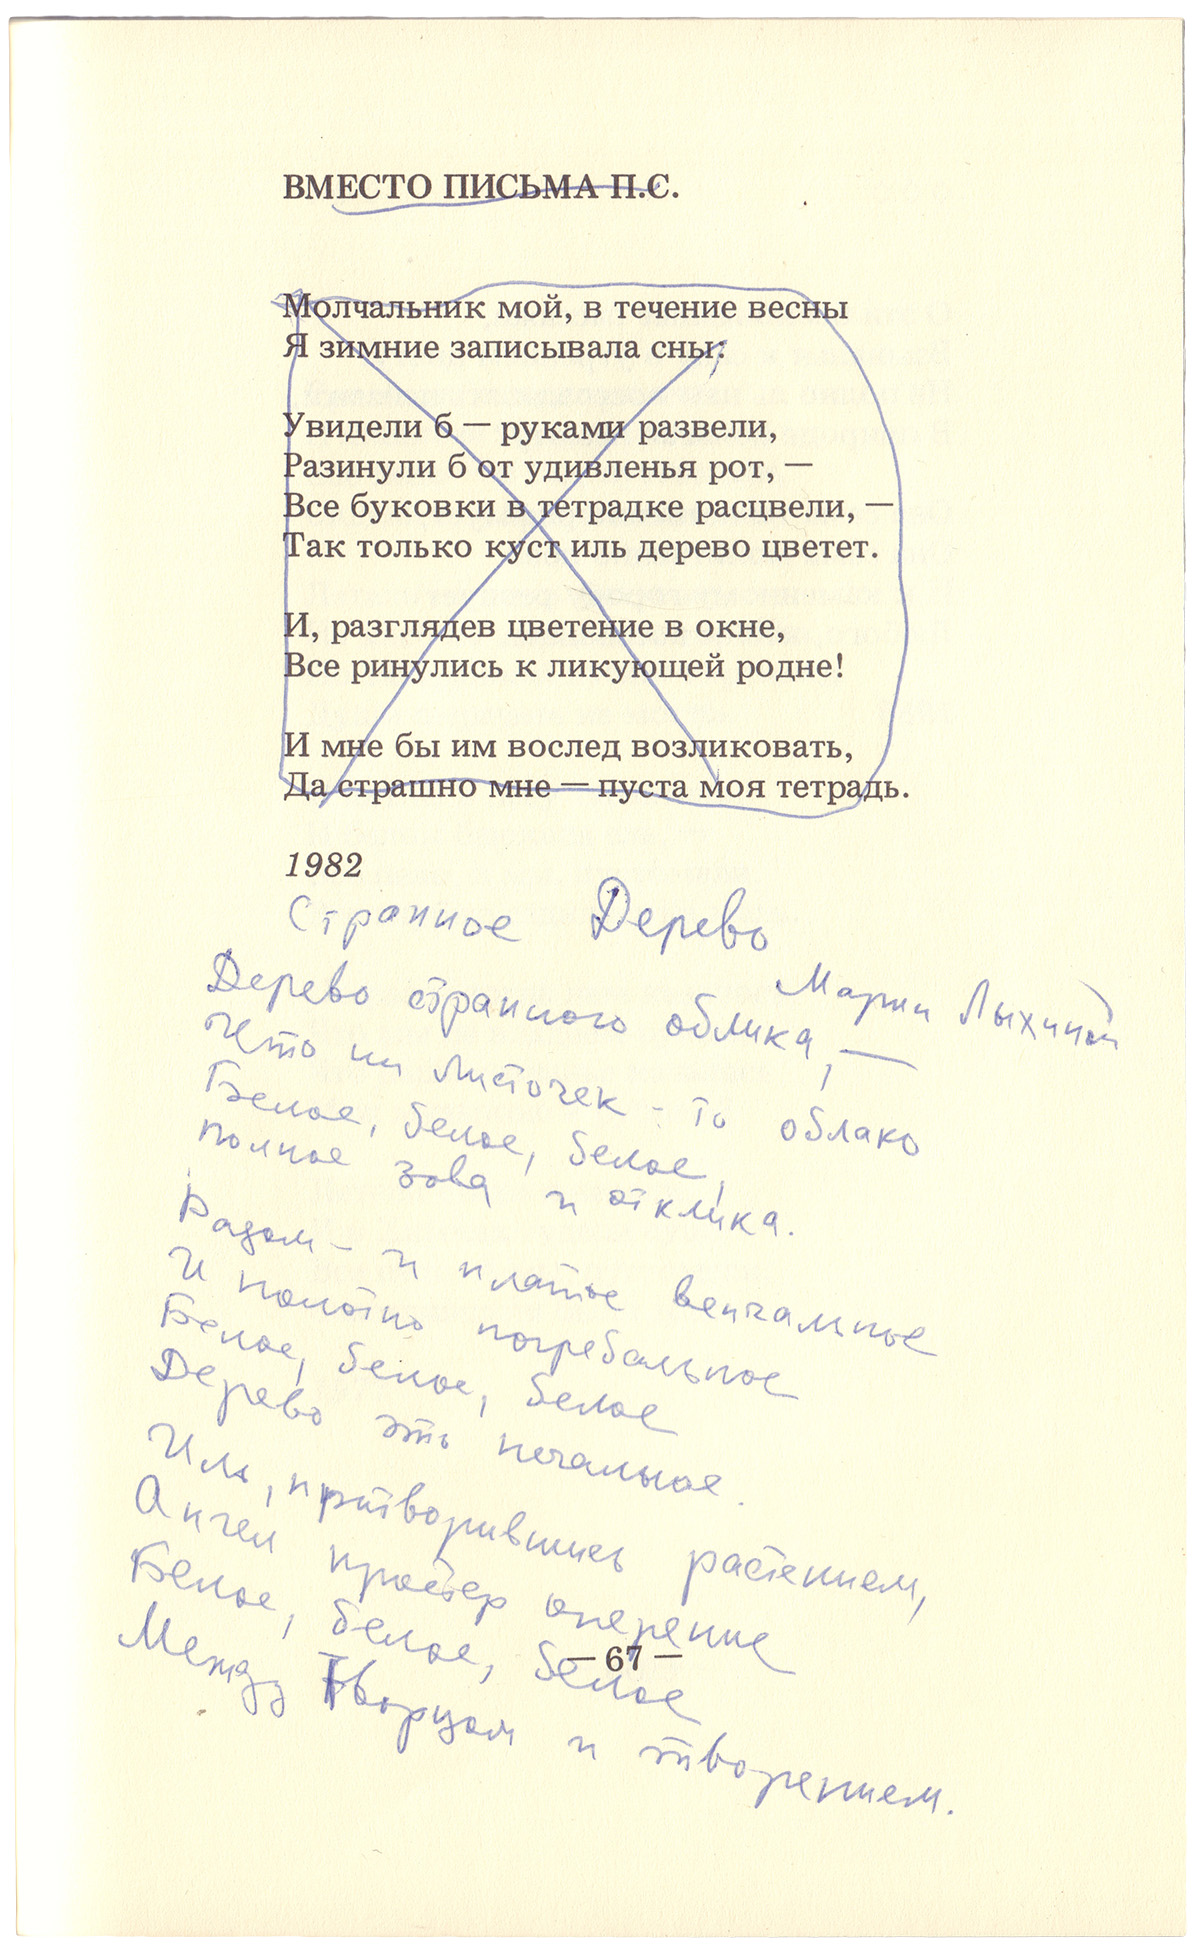 ВМЕСТО ПИСЬМА П.С.
Молчальник мой, в течение весны
Я зимние записывала сны:
Увидели б — руками развели,
Разинули б от удивленья рот, —
Все буковки в тетрадке расцвели, —
Так только куст иль дерево цветет.
И, разглядев цветение в окне,
Все ринулись к ликующей родне!
И мне бы им вослед возликовать,
Да страшно мне — пуста моя тетрадь.
1982
Странное Дерево
Марии Лыхиной
Дерево странного облика, —
Что ни листочек - то облако
Белое, белое, белое,
Полное зова и отклика.
Разом - и платье венчальное
И полотно погребальное
Белое, белое, белое
Дерево это печальное.
Иль, притворившись растением,
Ангел простёр оперение
Белое, белое, белое
— 67 —
Между Творцом и творением.